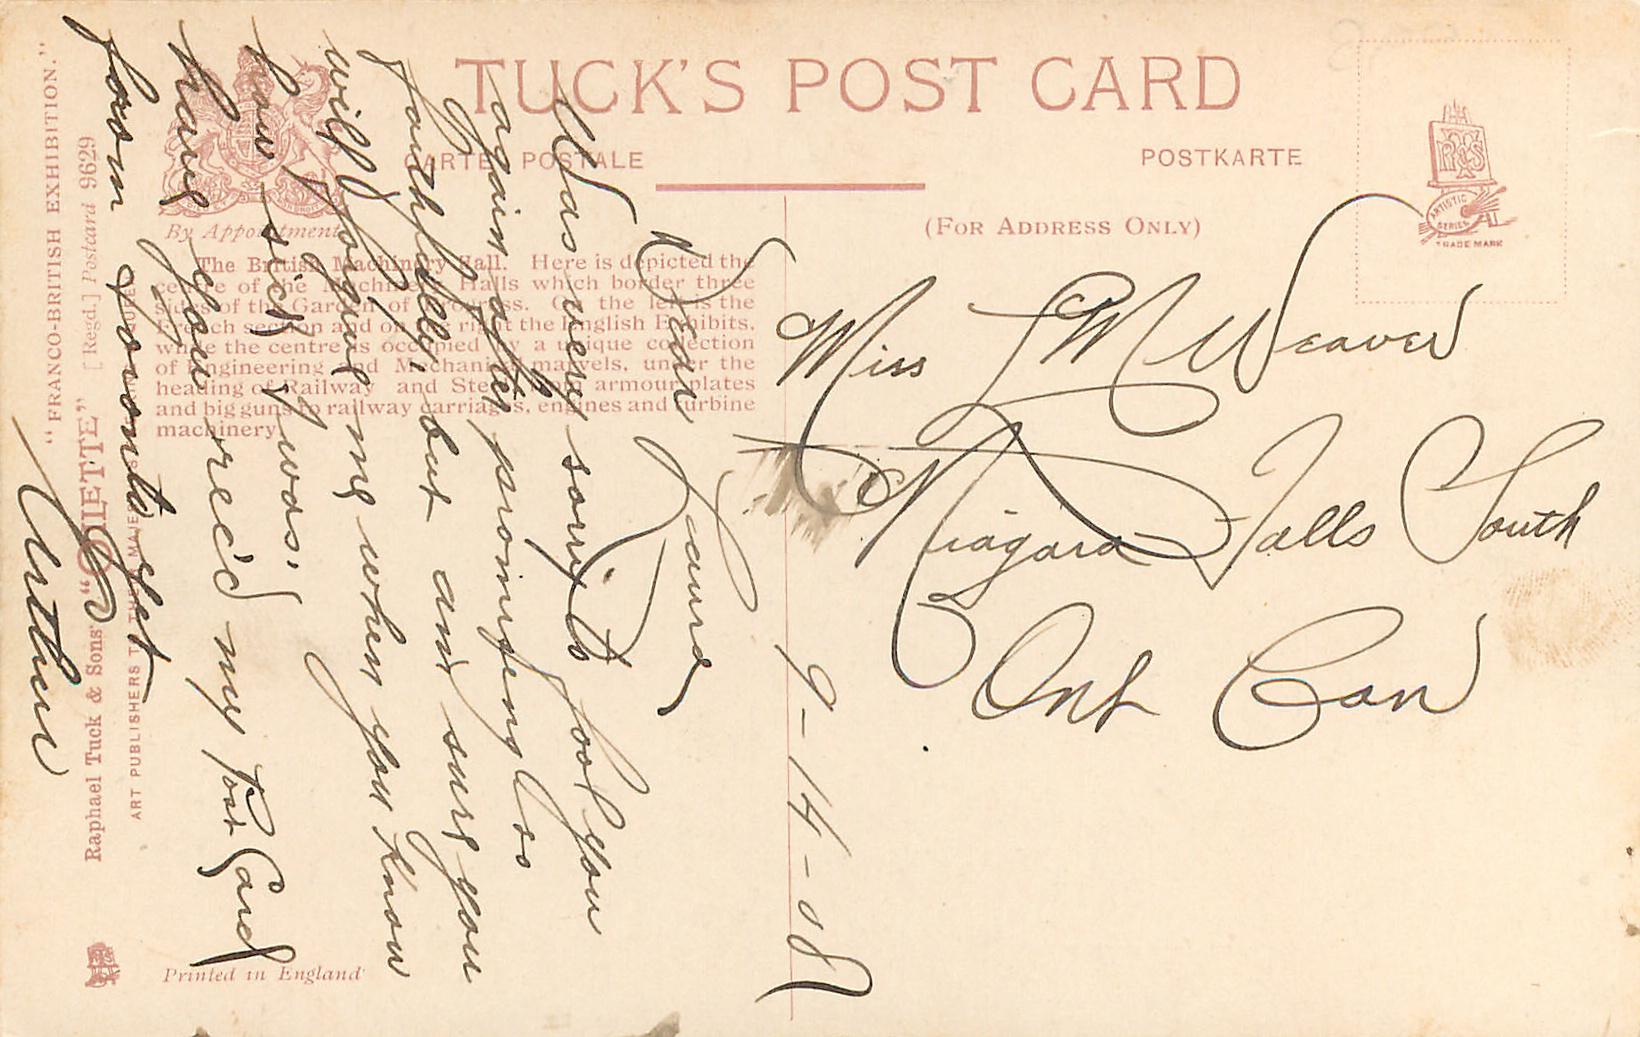 TUCK'S POST CARD
CARTE POSTALE
POSTKARTE
(FOR ADDRESS ONLY)
By Appointment
The British Machinery Hall. Here is depicted the
centre of the Machinery Halls which border three
sides of the Garden of Progress. On the left is the
French section and on the right the English Exhibits,
while the centre is occupied by a unique collection
of Engineering and Mechanical marvels, under the
heading of Railway and Steel armour plates
and big guns to railway carriages, engines and turbine
machinery.
"FRANCO-BRITISH EXHIBITION."
Raphael Tuck & Sons' "OILETTE" [Regd.] Postcard 9629
ART PUBLISHERS TO THEIR MAJESTIES
Printed in England
ARTISTIC
SERIES
TRADE MARK
Dear Laura,
Was very sorry to fool you
again after promising so
faithfully, but am sure you
will forgive me when you know
how sick I was.
have you rec'd my Post Card
from Toronto yet
Arthur
9-14-08
Miss L M Weaver
Niagara Falls South
Ont Can